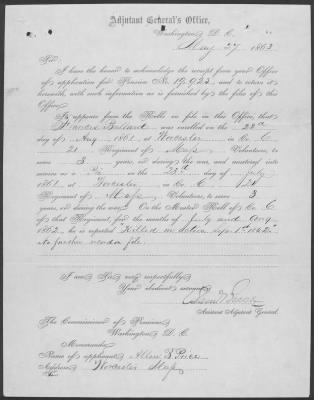 Adjutant General's Office,
Washington, D. C.
May 27, 1863.
Sir:
I have the honor to acknowledge the receipt from your Office
of application for Pension No. 19,922, and to return it
herewith, with such information as is furnished by the files of this
Office.
It appears from the Rolls on file in this Office, that
was enrolled on the
day of Aug 1861 at Worcester in Co. C
21 Regiment of Mass Volunteers, to
serve 3 years, or during the war, and mustered into
service as a on the day of
1861 at Worcester in Co. C 21
Regiment of Mass Volunteers, to serve 3
years, or during the war. On the Muster Roll of Co. C
of that Regiment, for the months of July and Aug
1862, he is reported "Killed in action Sept 1st 1862."
No further record on file.
I am, Sir, very respectfully,
Your obedient servant,
Assistant Adjutant General.
The Commissioner of Pensions,
Washington, D. C.
Memoranda:
Name of applicant,
Address, Worcester Mass